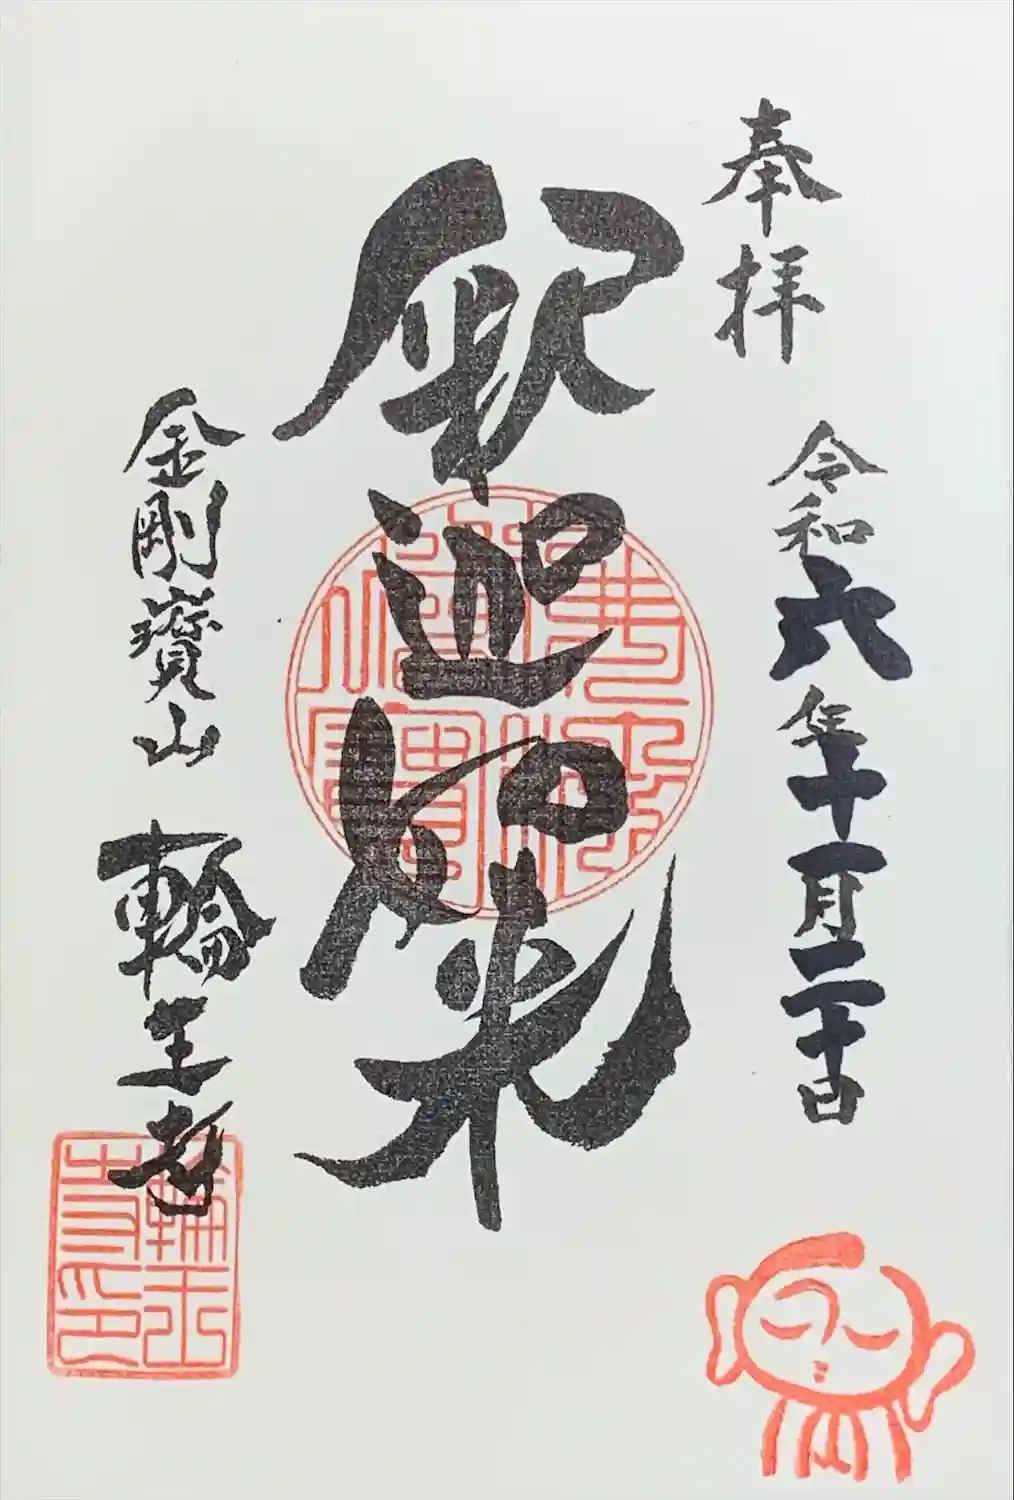 奉拝
令和六年十一月二十日
釈迦如来
金剛寶山
輪王寺
輪王
寺印